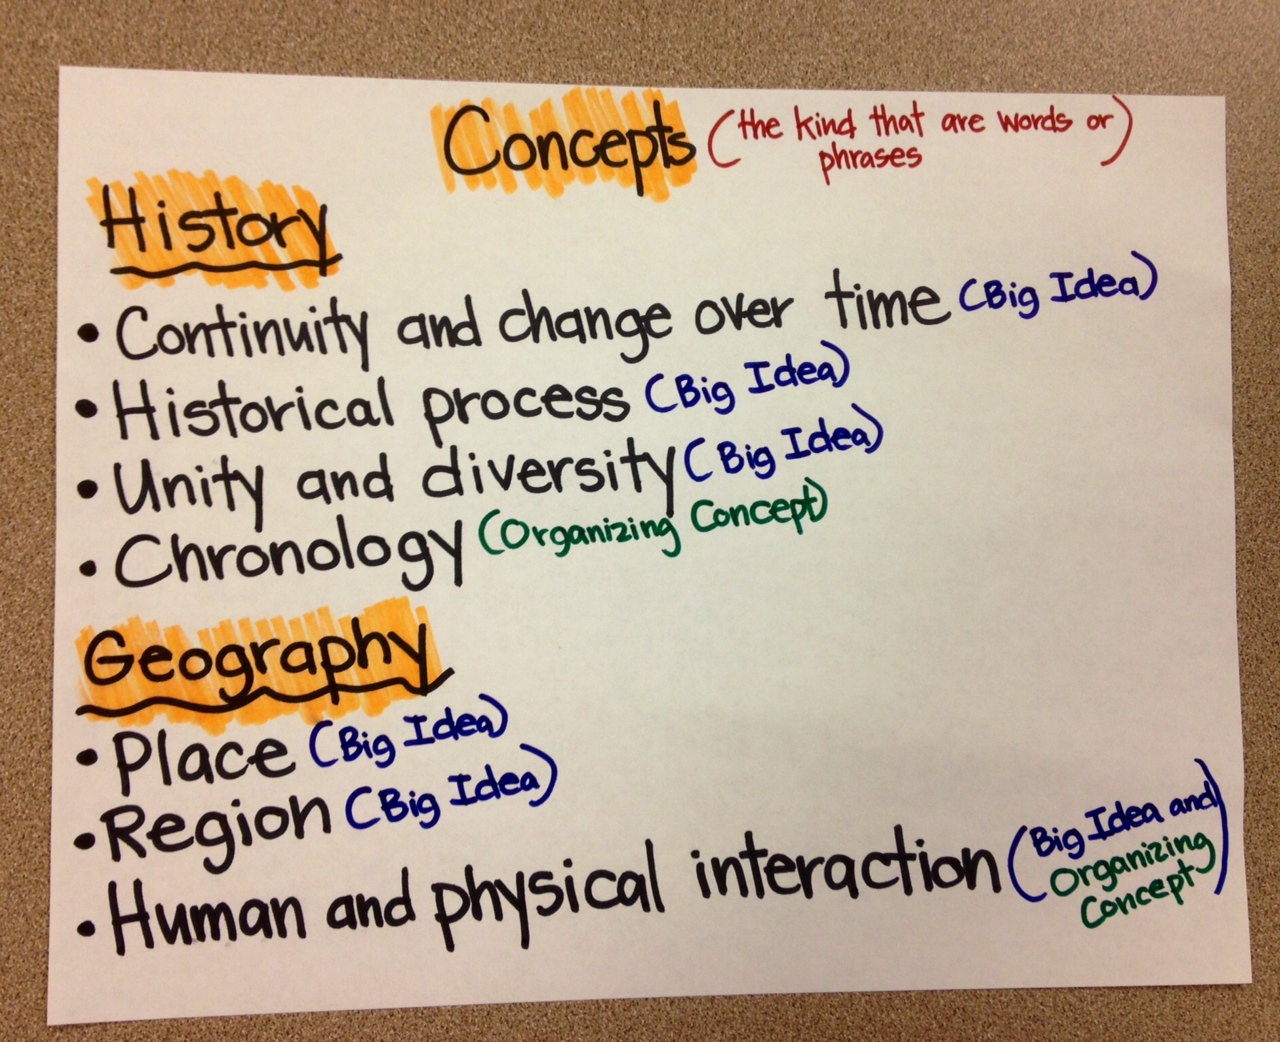 Concepts (the kind that are words or
phrases)
History
• Continuity and change over time (Big Idea)
• Historical process (Big Idea)
• Unity and diversity (Big Idea)
• Chronology (Organizing Concept)
Geography
• Place (Big Idea)
• Region (Big Idea)
• Human and physical interaction (Big Idea and
Organizing
Concept)